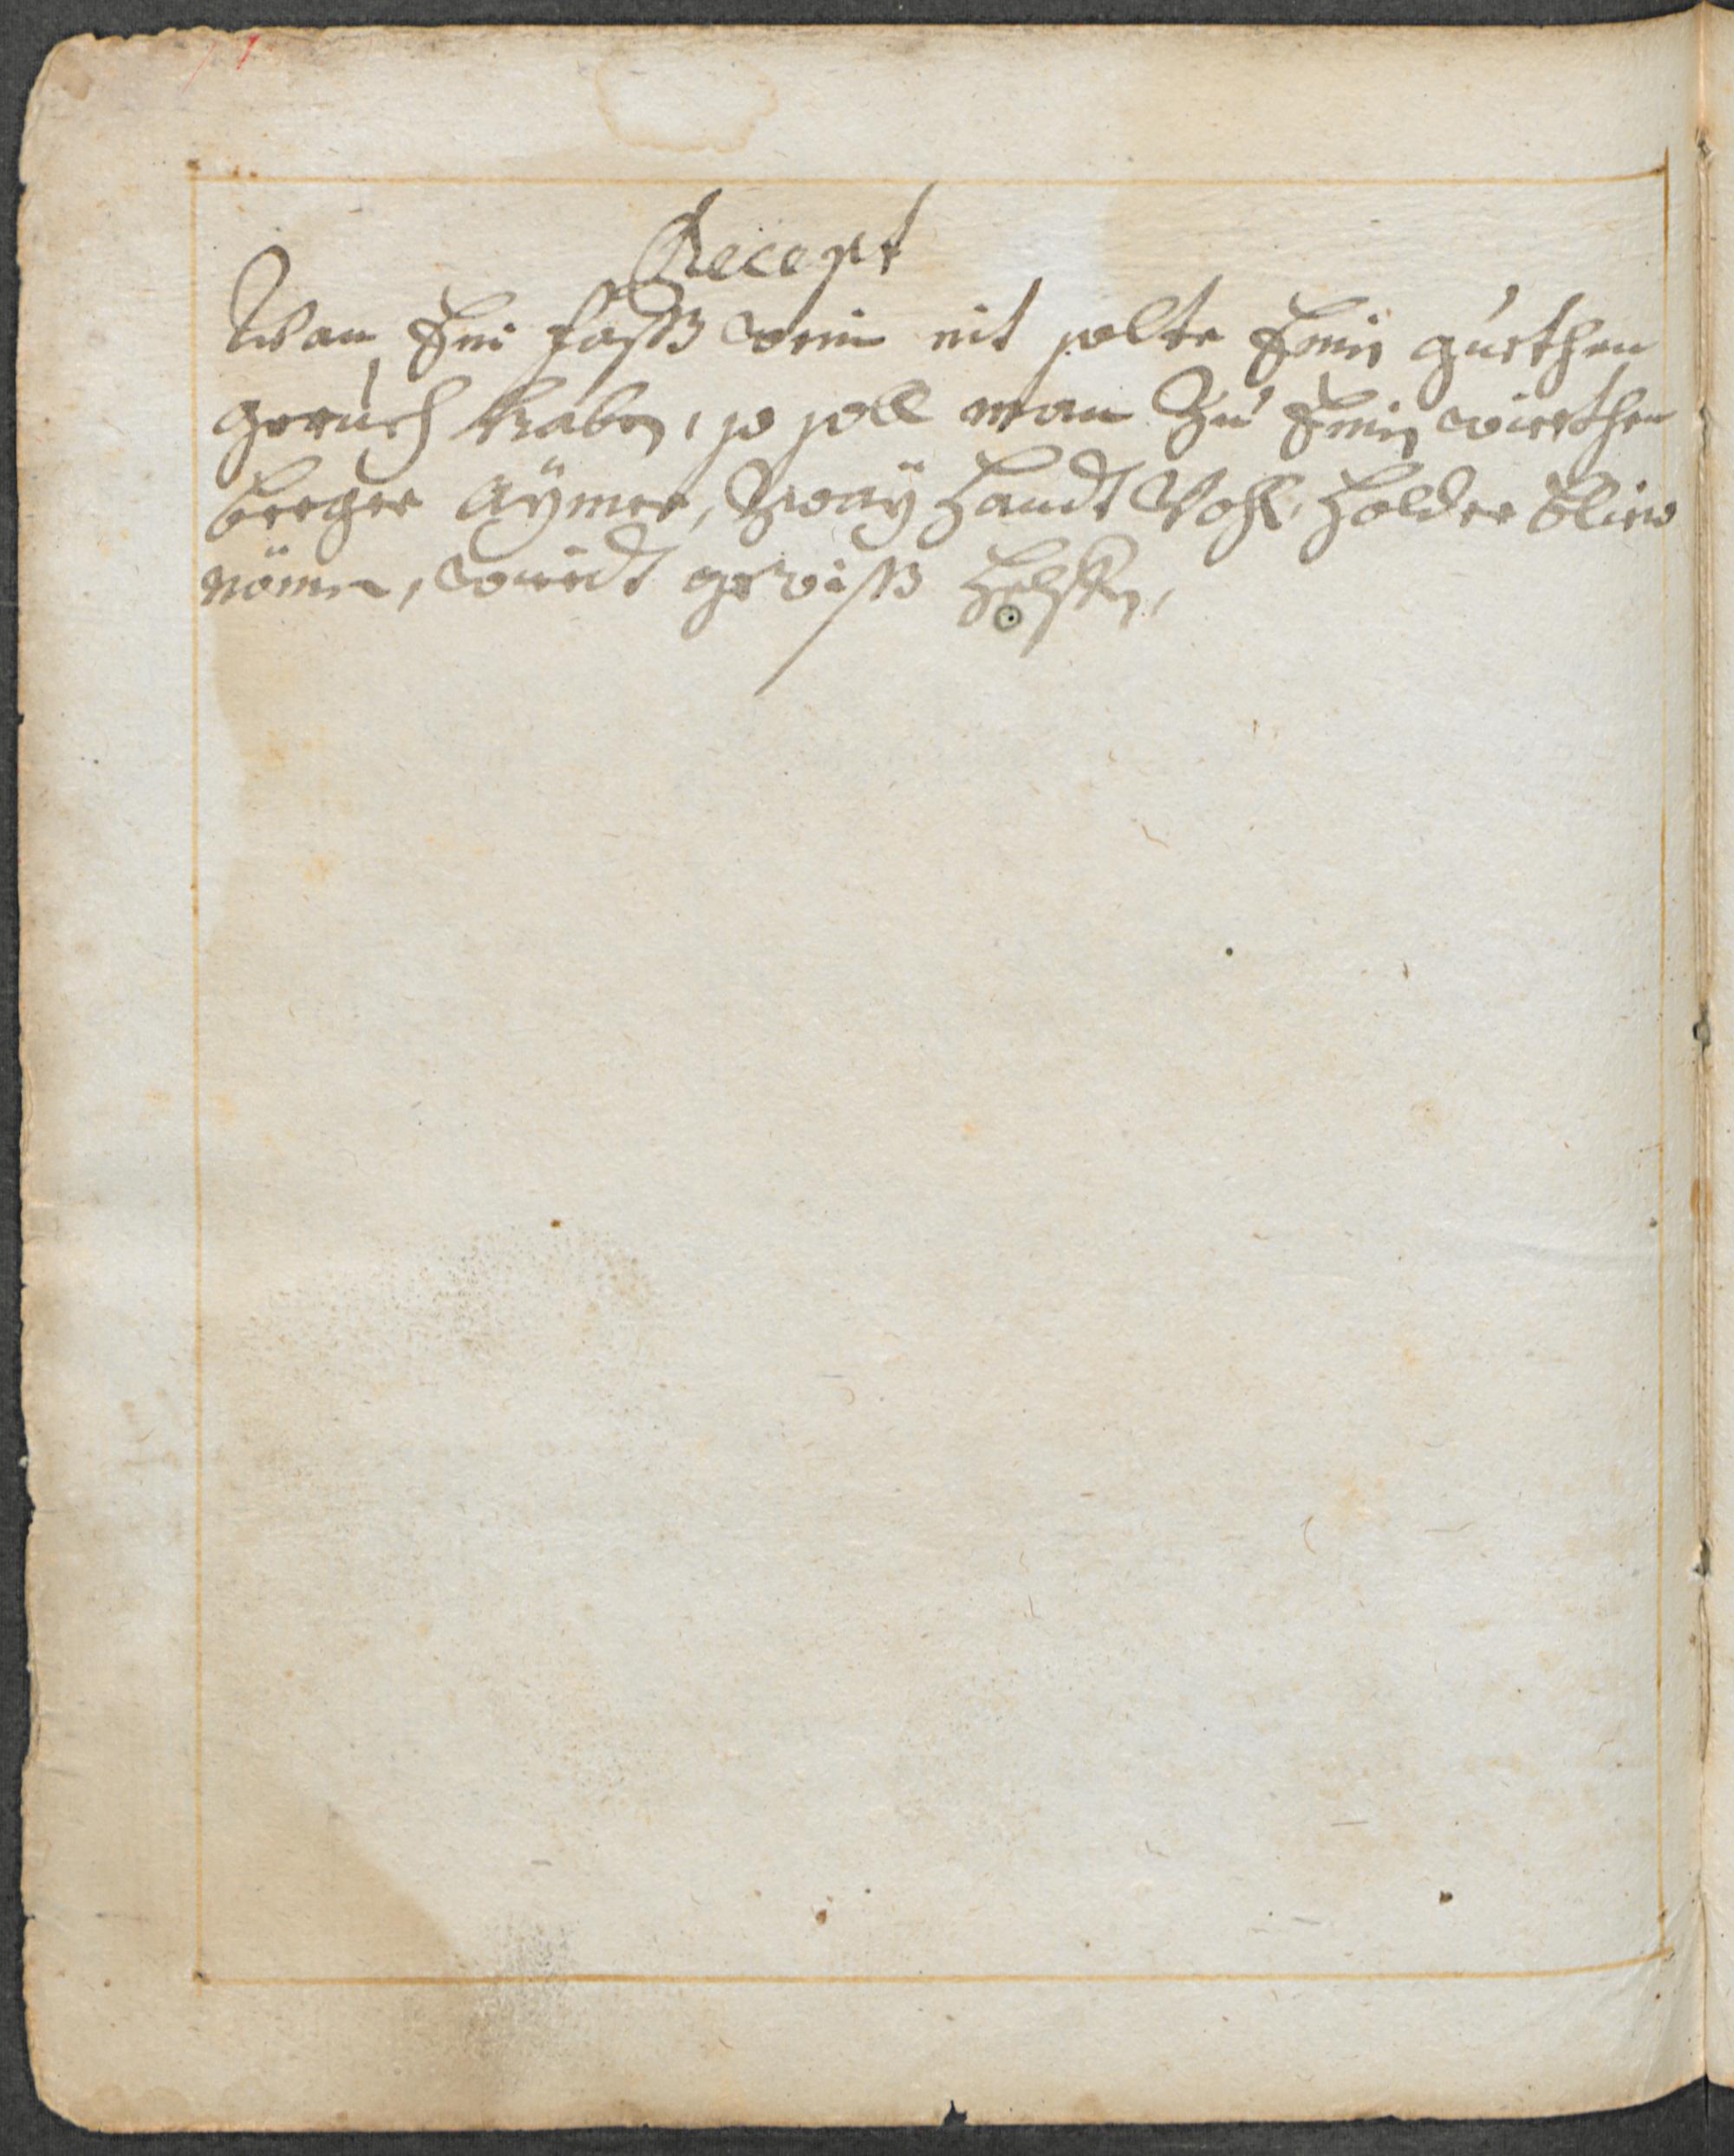 Recept
Wan Ein faß wein nit solte Einen gueten
geruch haben, so soll man Zu Einen wirthen
berger Aÿmer, Zwaÿ Handt Voll, Holder blie
nömen, wirdt gewiß Helffen,